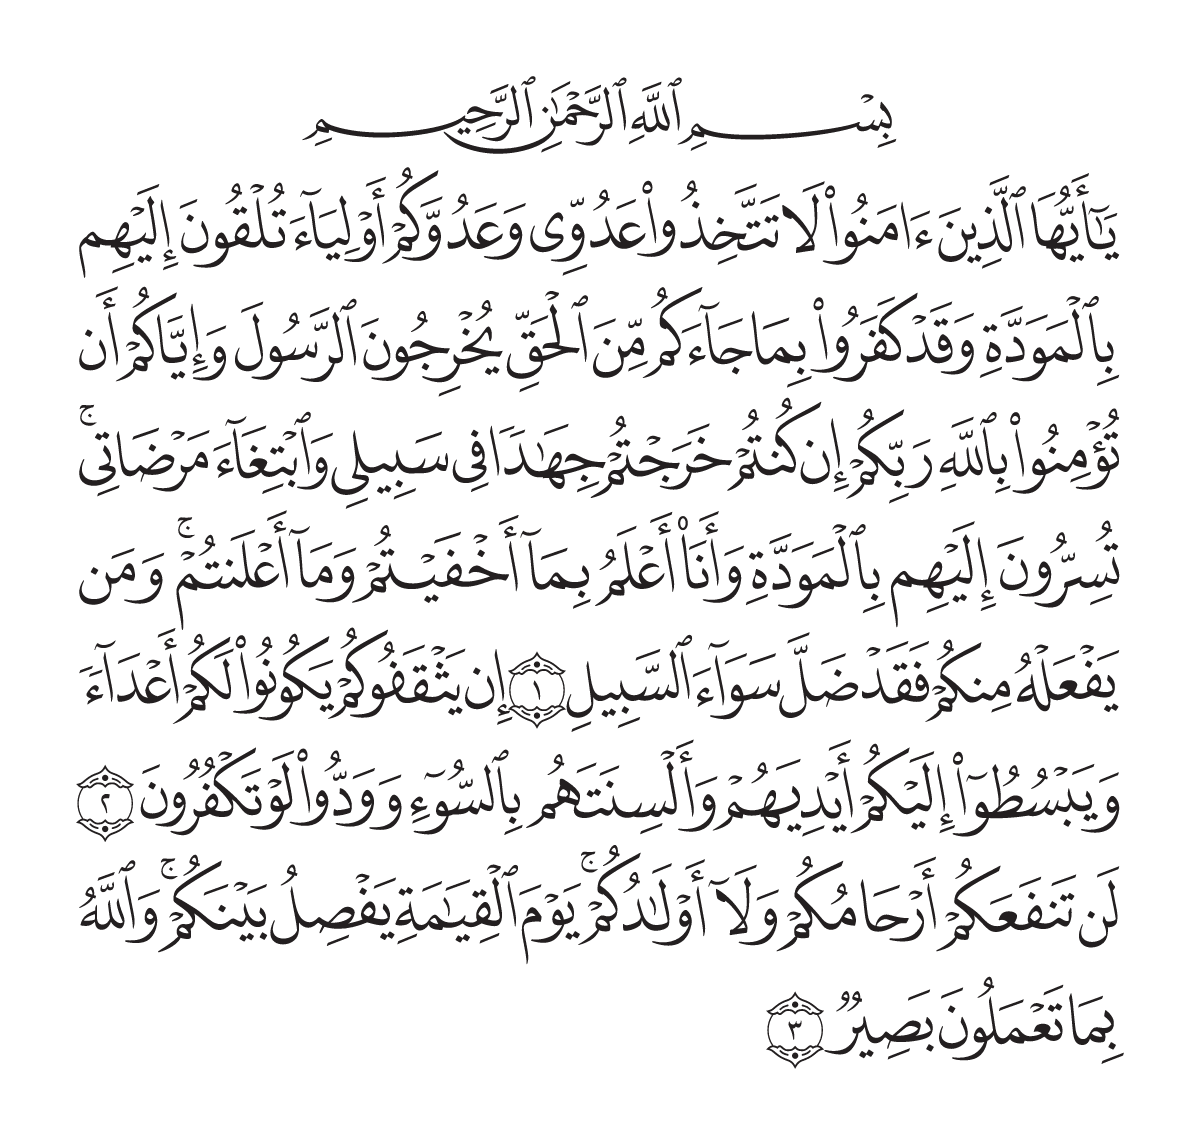 بِسْمِ ٱللَّهِ ٱلرَّحْمَٰنِ ٱلرَّحِيمِ
يَٰٓأَيُّهَا ٱلَّذِينَ ءَامَنُوا۟ لَا تَتَّخِذُوا۟ عَدُوِّى وَعَدُوَّكُمْ أَوْلِيَآءَ تُلْقُونَ إِلَيْهِم
بِٱلْمَوَدَّةِ وَقَدْ كَفَرُوا۟ بِمَا جَآءَكُم مِّنَ ٱلْحَقِّ يُخْرِجُونَ ٱلرَّسُولَ وَإِيَّاكُمْ أَن
تُؤْمِنُوا۟ بِٱللَّهِ رَبِّكُمْ إِن كُنتُمْ خَرَجْتُمْ جِهَٰدًا فِى سَبِيلِى وَٱبْتِغَآءَ مَرْضَاتِى ۚ
تُسِرُّونَ إِلَيْهِم بِٱلْمَوَدَّةِ وَأَنَا۠ أَعْلَمُ بِمَآ أَخْفَيْتُمْ وَمَآ أَعْلَنتُمْ ۚ وَمَن
يَفْعَلْهُ مِنكُمْ فَقَدْ ضَلَّ سَوَآءَ ٱلسَّبِيلِ ١ إِن يَثْقَفُوكُمْ يَكُونُوا۟ لَكُمْ أَعْدَآءً
وَيَبْسُطُوٓا۟ إِلَيْكُمْ أَيْدِيَهُمْ وَأَلْسِنَتَهُم بِٱلسُّوٓءِ وَوَدُّوا۟ لَوْ تَكْفُرُونَ ٢
لَن تَنفَعَكُمْ أَرْحَامُكُمْ وَلَآ أَوْلَٰدُكُمْ ۚ يَوْمَ ٱلْقِيَٰمَةِ يَفْصِلُ بَيْنَكُمْ ۚ وَٱللَّهُ
بِمَا تَعْمَلُونَ بَصِيرٌ ٣